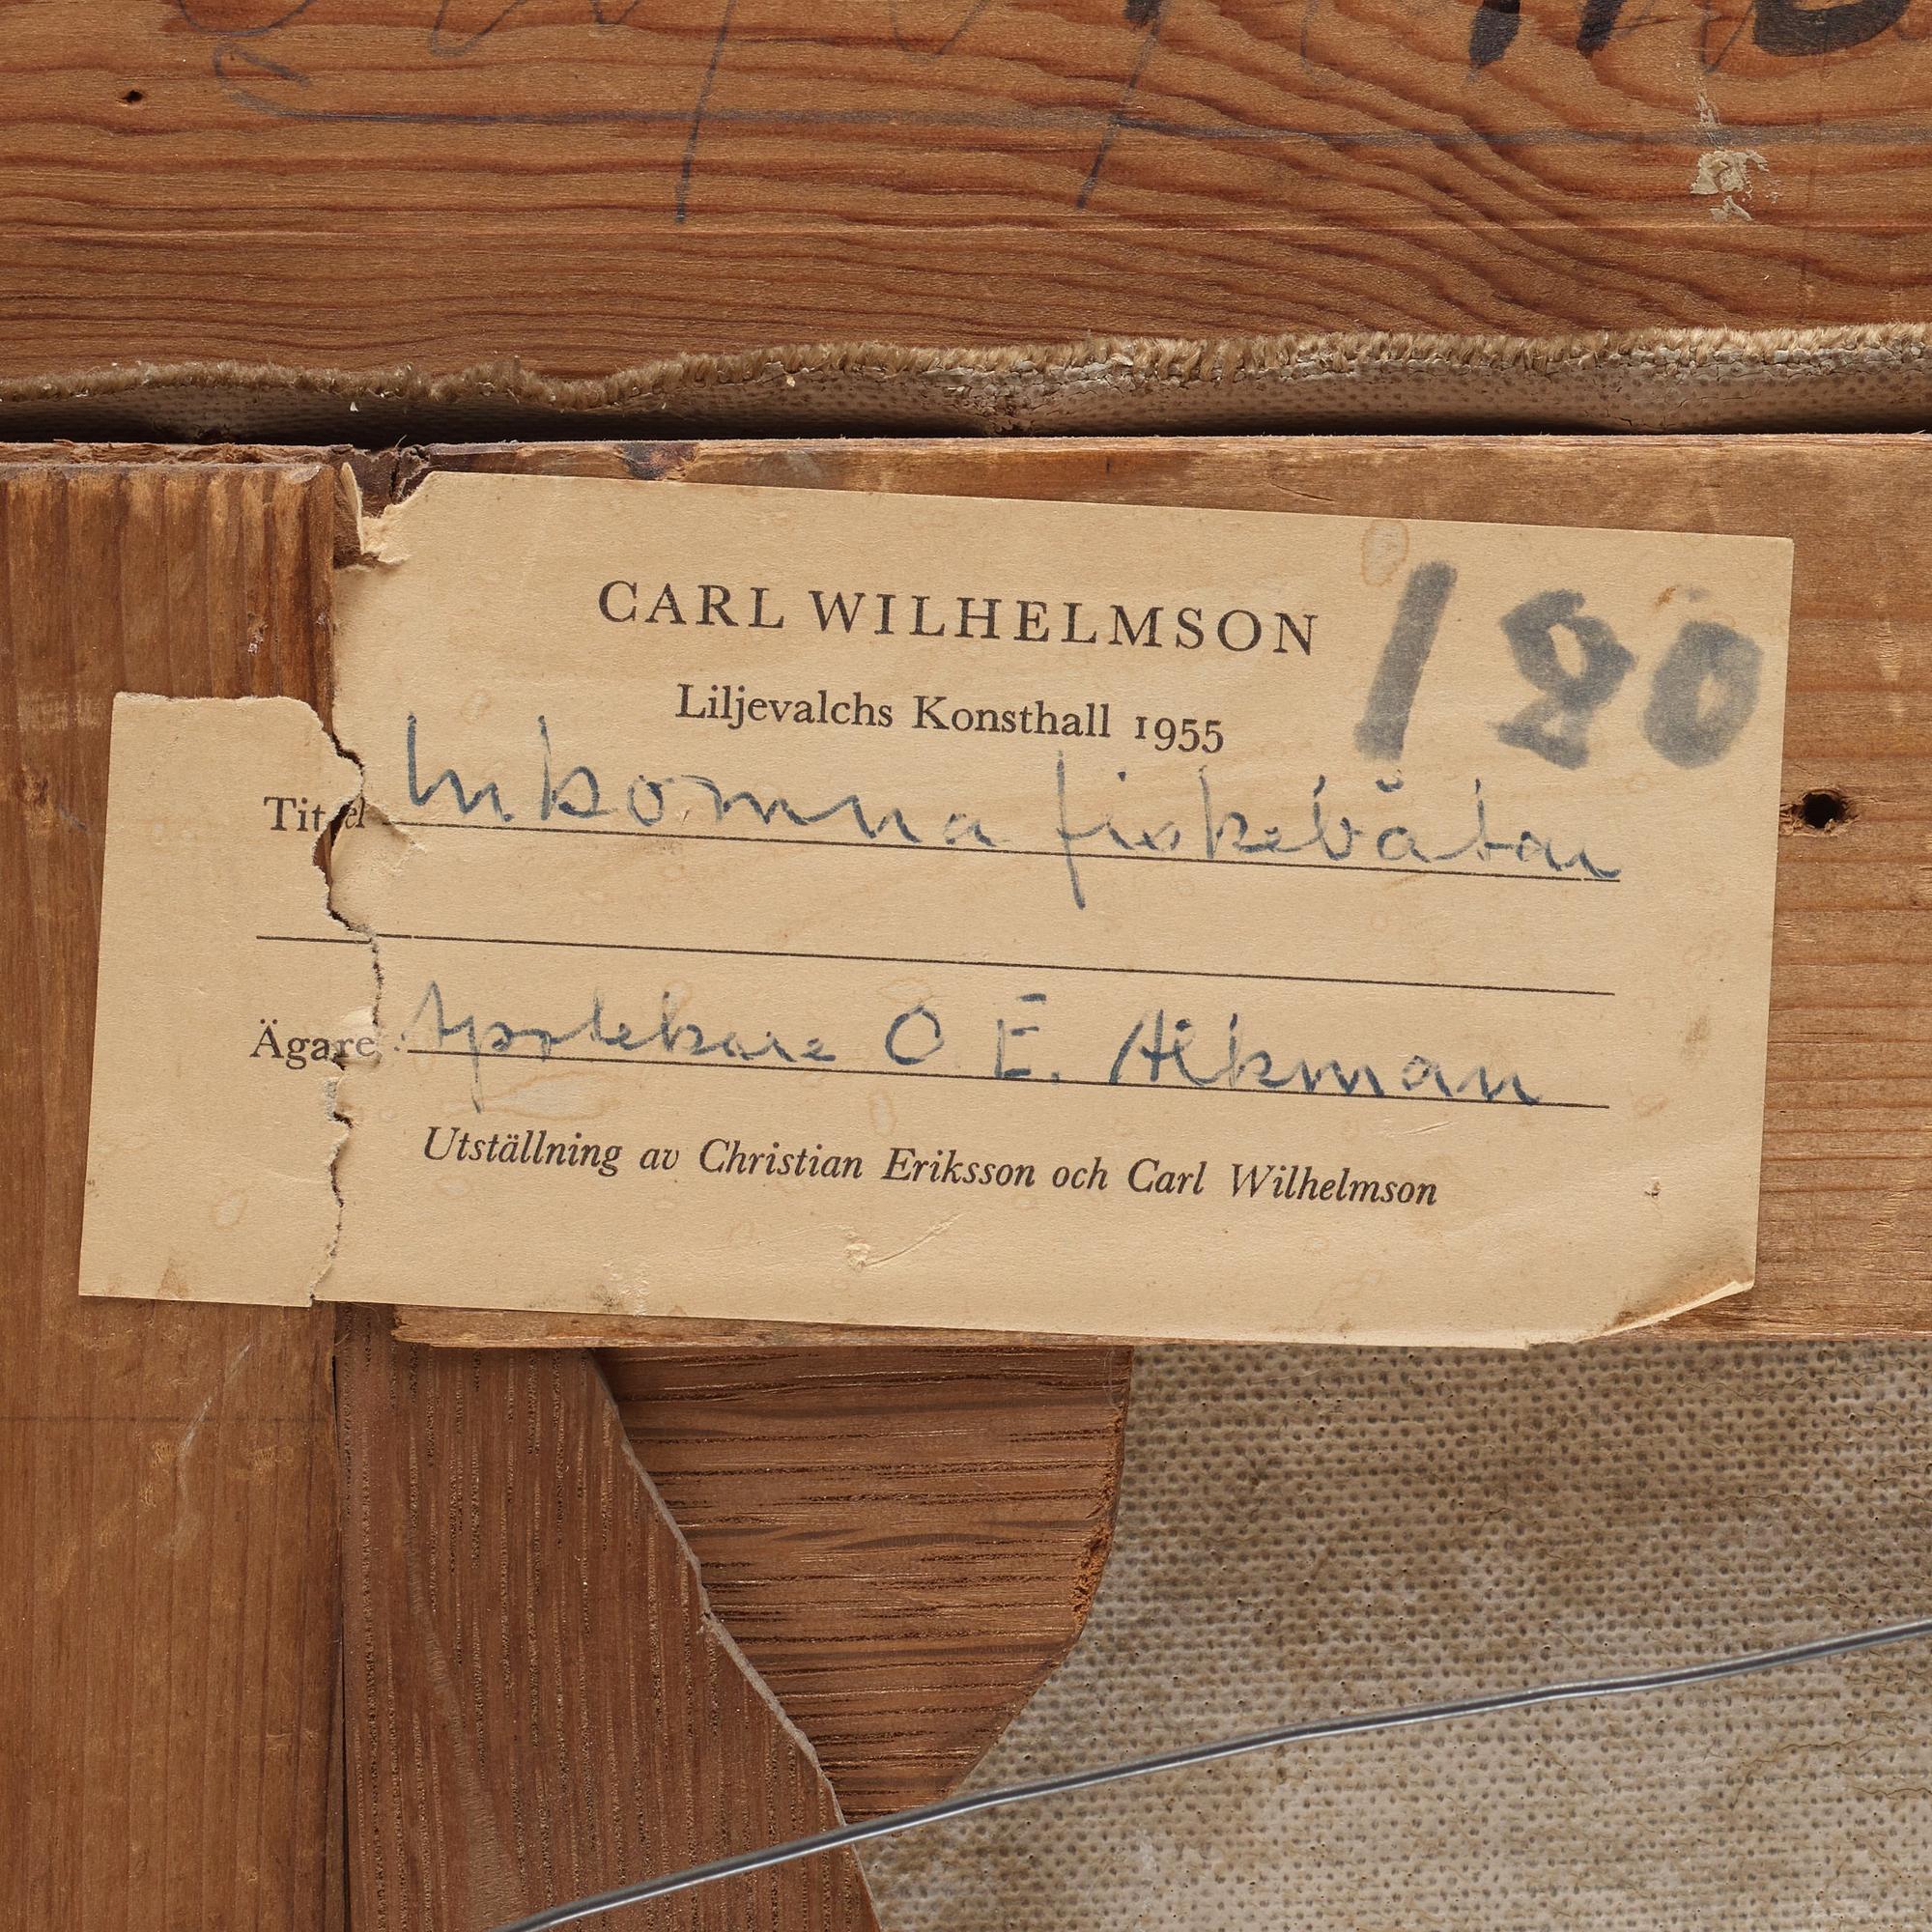 CARL WILHELMSON
180
Liljevalchs Konsthall 1955
Titel Inkomna fiskebåtar
Ägare Apotekare O. E. Alkman
Utställning av Christian Eriksson och Carl Wilhelmson